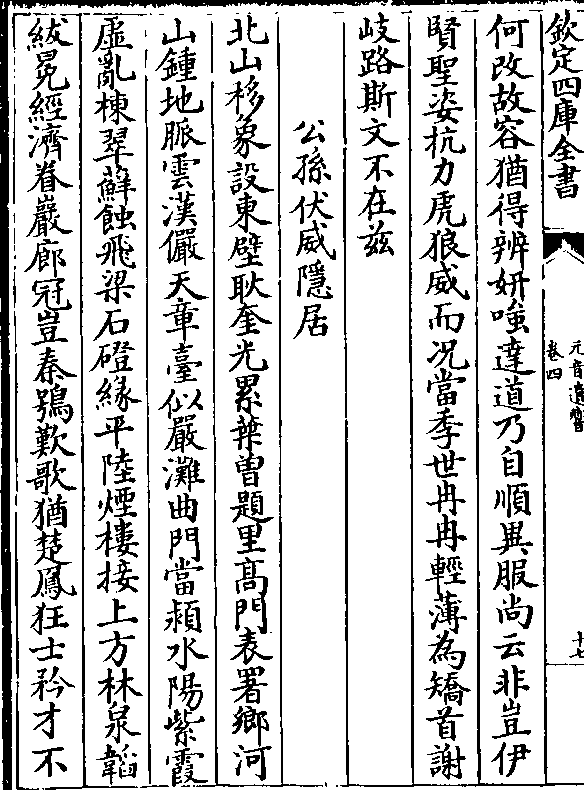 欽定四庫全書
元音遺響
卷四
十七
何改故容猶得辨妍嗤達道乃自順異服尚云非豈伊
賢聖姿抗力虎狼威而况當季世冉冉輕薄為矯首謝
岐路斯文不在兹
公孫伏威隱居
北山移象設東壁耿奎光累葉曽題里髙門表署鄉河
山鍾地脈雲漢儼天章臺似嚴灘曲門當潁水陽紫霞
虛亂棟翠蘚蝕飛梁石磴緣平陸煙樓接上方林泉韜
紱冕經濟眷巖廊冠豈秦鴞歎歌猶楚鳳狂士矜才不